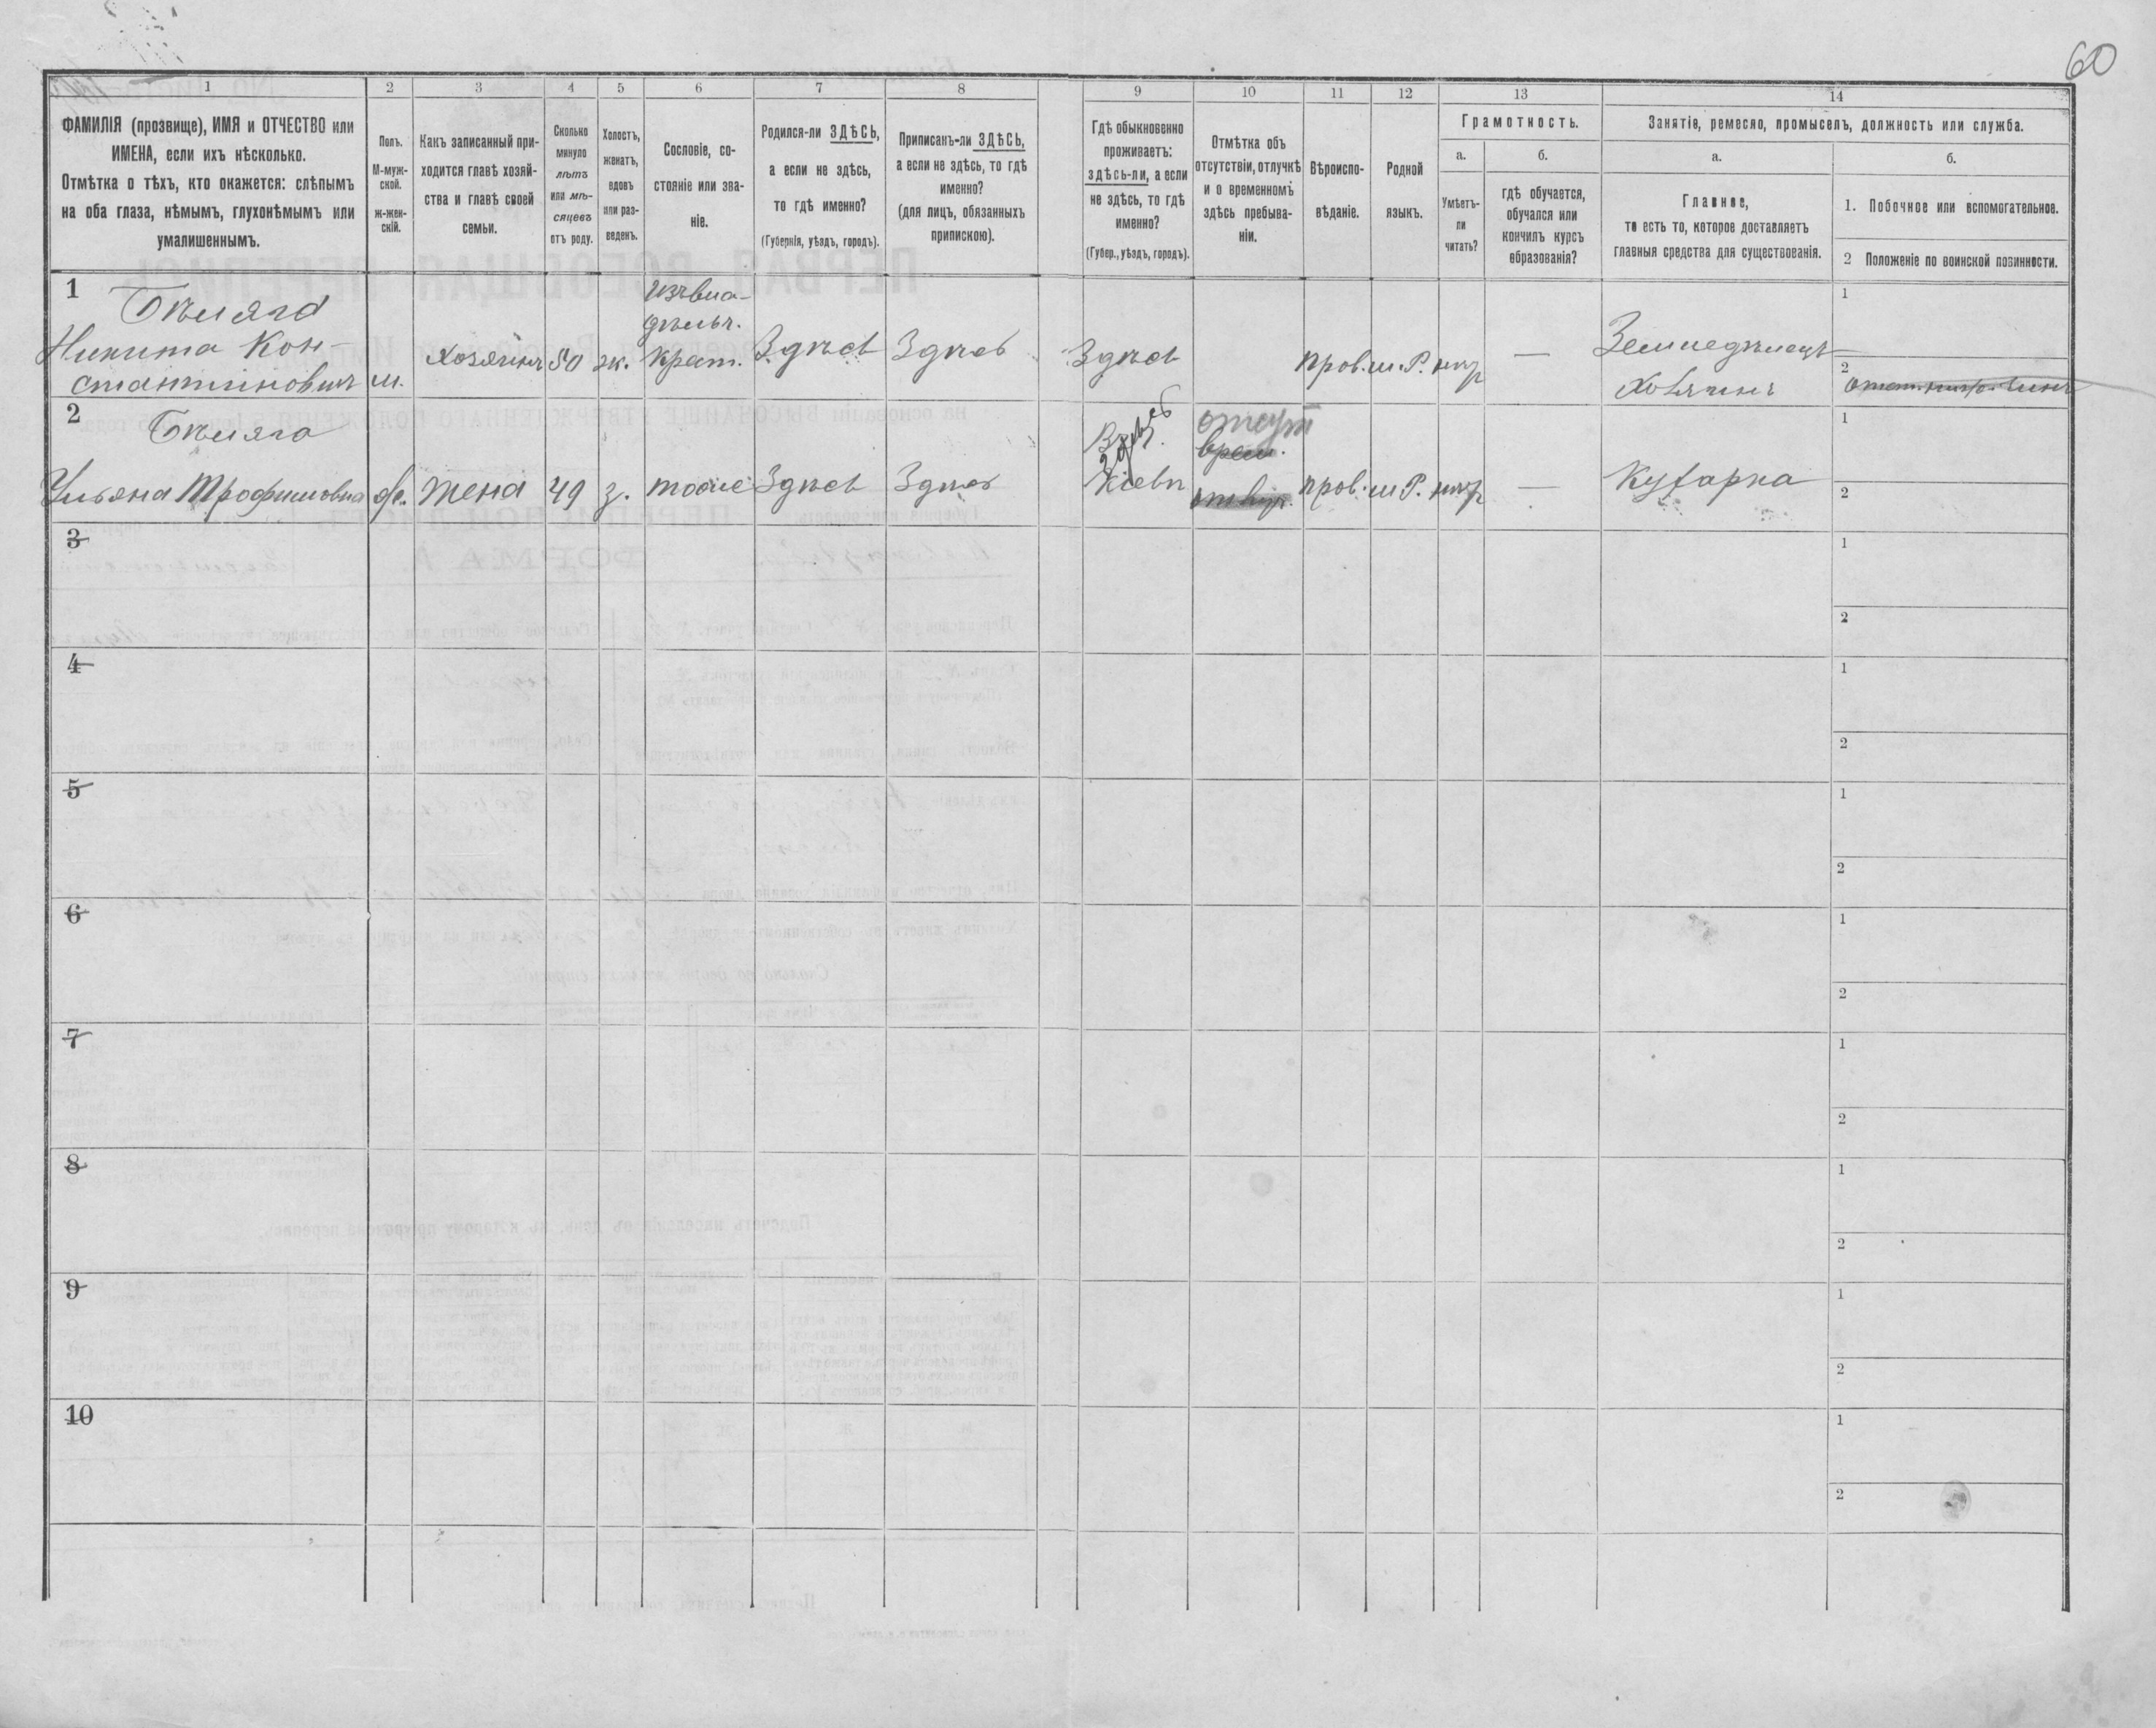 60
1 2 3 4 5 6 7 8 9 10 11 12 13 14
ФАМИЛІЯ (прозвище), ИМЯ и ОТЧЕСТВО или
ИМЕНА, если ихъ нѣсколько.
Отмѣтка о тѣхъ, кто окажется: слѣпымъ
на оба глаза, нѣмымъ, глухонѣмымъ или
умалишеннымъ.
Полъ.
М-муж-
ской.
ж-жен-
скій.
Какъ записанный при-
ходится главѣ хозяй-
ства и главѣ своей
семьи.
Сколько
минуло
лѣтъ
или мѣ-
сяцевъ
отъ роду.
Холостъ,
женатъ,
вдовъ
или раз-
веденъ.
Сословіе, со-
стояніе или зва-
ніе.
Родился-ли ЗДѢСЬ,
а если не здѣсь,
то гдѣ именно?
(Губернія, уѣздъ, городъ).
Приписанъ-ли ЗДѢСЬ,
а если не здѣсь, то гдѣ
именно?
(для лицъ, обязанныхъ
припискою).
Гдѣ обыкновенно
проживаетъ:
здѣсь-ли, а если
не здѣсь, то гдѣ
именно?
(Губер., уѣздъ, городъ).
Отмѣтка объ
отсутствіи, отлучкѣ
и о временномъ
здѣсь пребыва-
ніи.
Вѣроиспо-
вѣданіе.
Родной
языкъ.
Грамотность.
а.
Умѣетъ-
ли
читать?
б.
гдѣ обучается,
обучался или
кончилъ курсъ
образованія?
Занятіе, ремесло, промыселъ, должность или служба.
а.
Главное,
то есть то, которое доставляетъ
главныя средства для существованія.
б.
1. Побочное или вспомогательное.
2 Положеніе по воинской повинности.
1
Бѣляга
Никита Кон-
стантиновичъ
м.
Хозяинъ
50
ж.
Крест.
Здѣсь
Здѣсь
Здѣсь
прав.
м.Р.
—
Земледѣлецъ
Хозяинъ
1
2
2
Бѣляга
Ульяна Трофимовна
ж.
жена
49
з.
тоже
Здѣсь
Здѣсь
Здѣсь
Кіевъ
отсут
врем.
прав.
м.Р.
—
Кухарка
1
2
3
1
2
4
1
2
5
1
2
6
1
2
7
1
2
8
1
2
9
1
2
10
1
2